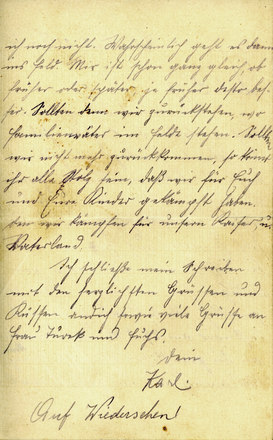 ich noch nicht. Wahrscheinlich geht es dann
ins Feld. Mir ist schon ganz gleich ob
früher oder später, je früher desto bes-
ser. Sollten denn wir zurückstehen, wo
Familienväter im Felde stehen. Sollten
wir nicht mehr zurückkommen, so könnt
ihr alle stolz sein, daß wir für Euch
und Eure Kinder gekämpft haben.
denn wir kämpfen für unsern Kaiser, u
Vaterland.
Ich schließe mein Schreiben
mit den herzlichsten Grüssen und
Küssen an dich sowie viele Grüsse an
Frau Türck und Fuchs.
dein
Karl.
Auf Wiedersehen